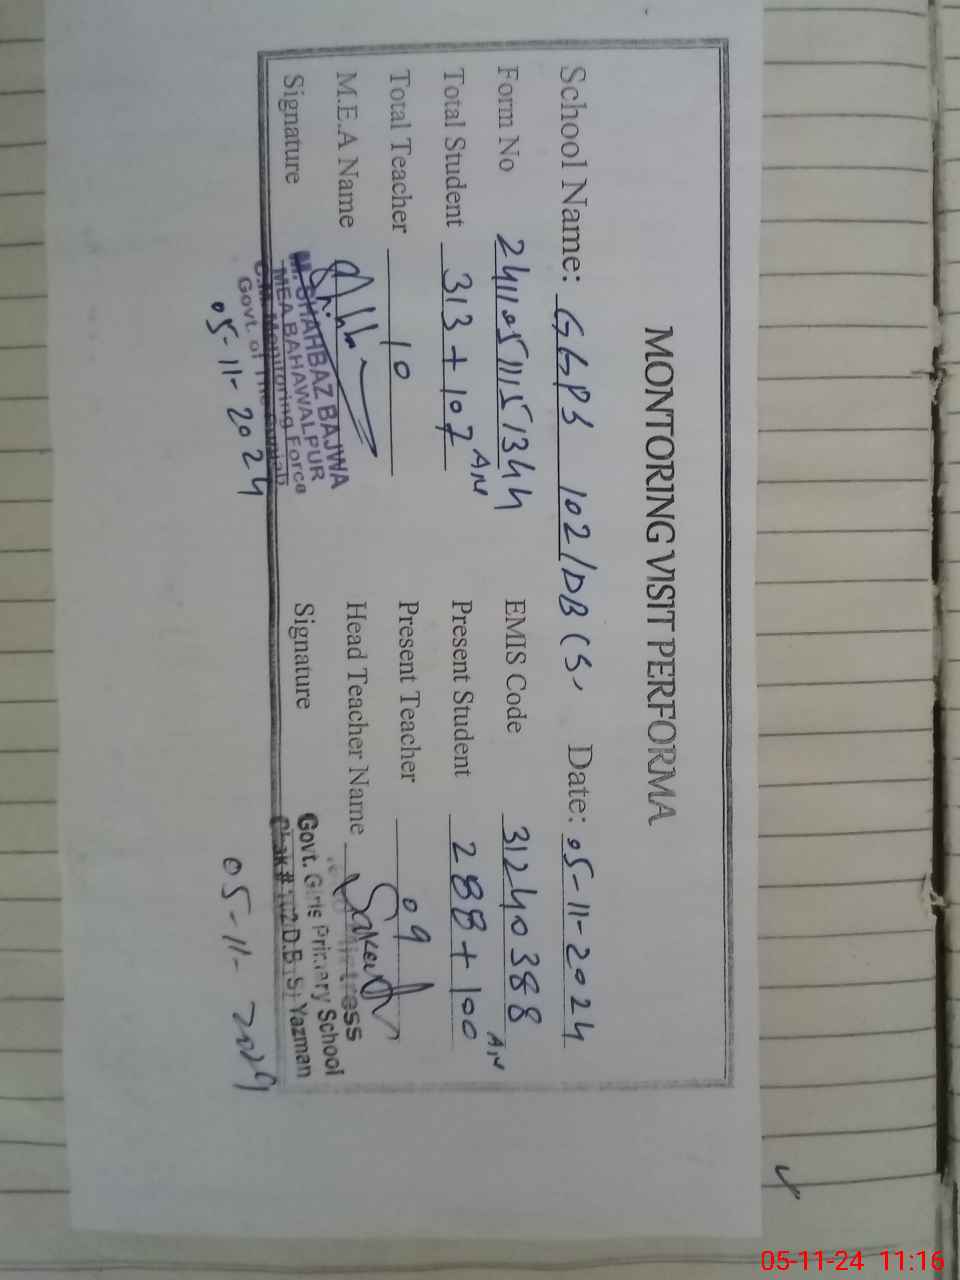 MONTORING VISIT PERFORMA
School Name: GGPS 102/DB (S. Date: 05-11-2024
Form No 24110511151344 EMIS Code 31240388
Total Student 313 + 107 AN Present Student 288 + 100 AN
Total Teacher 10 Present Teacher 09
M.E.A Name Head Teacher Name
Signature Signature
M. SHAHBAZ BAJWA
MEA BAHAWALPUR
C.M. Monitoring Force
Govt. of The Punjab
05-11-2024
Govt. Girls Primary School
Chak # 102 D.B (S) Yazman
05-11-2024
05-11-24 11:16